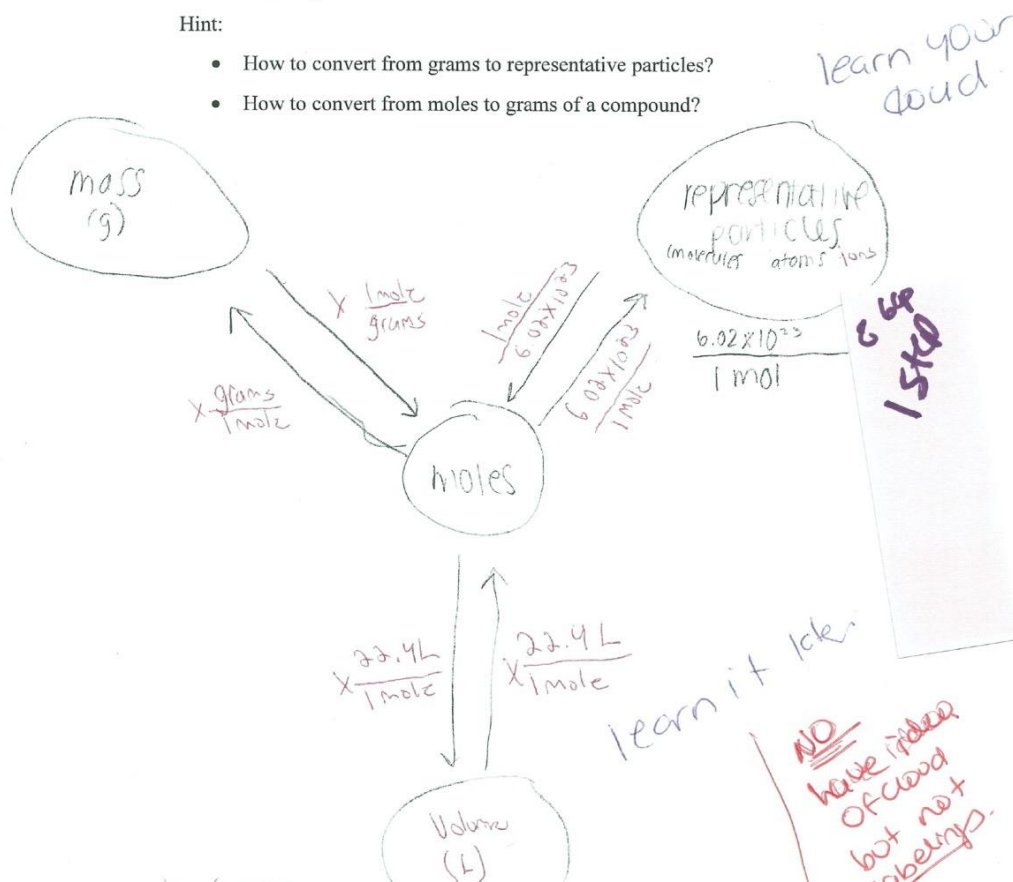 Hint:
• How to convert from grams to representative particles?
• How to convert from moles to grams of a compound?
learn your
cloud
mass
(g)
representative
particles
(molecules atoms ions
x 1mole
grams
1mole
6.02x10 23
6.02x10 23
1 mole
6.02x10 23
1 mol
1 step
x grams
1 mole
moles
x 22.4L
1 mole
x 22.4 L
1 mole
learn it later
NO
have idea
of cloud
but not
labelings.
Volume
(L)